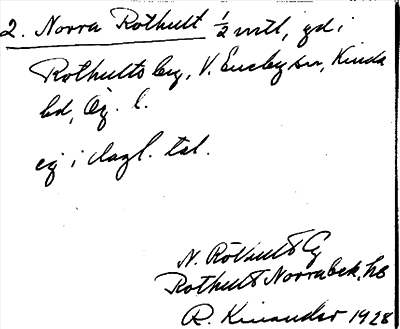 2. Norra Rothult ½ mtl, gd i
Rothults by, V. Eneby sn, Kinda
hd, Ög. l.
ej i dagl. tal.
N. Rothult G
Rothult Norrabek, hs
R. Kinander 1928